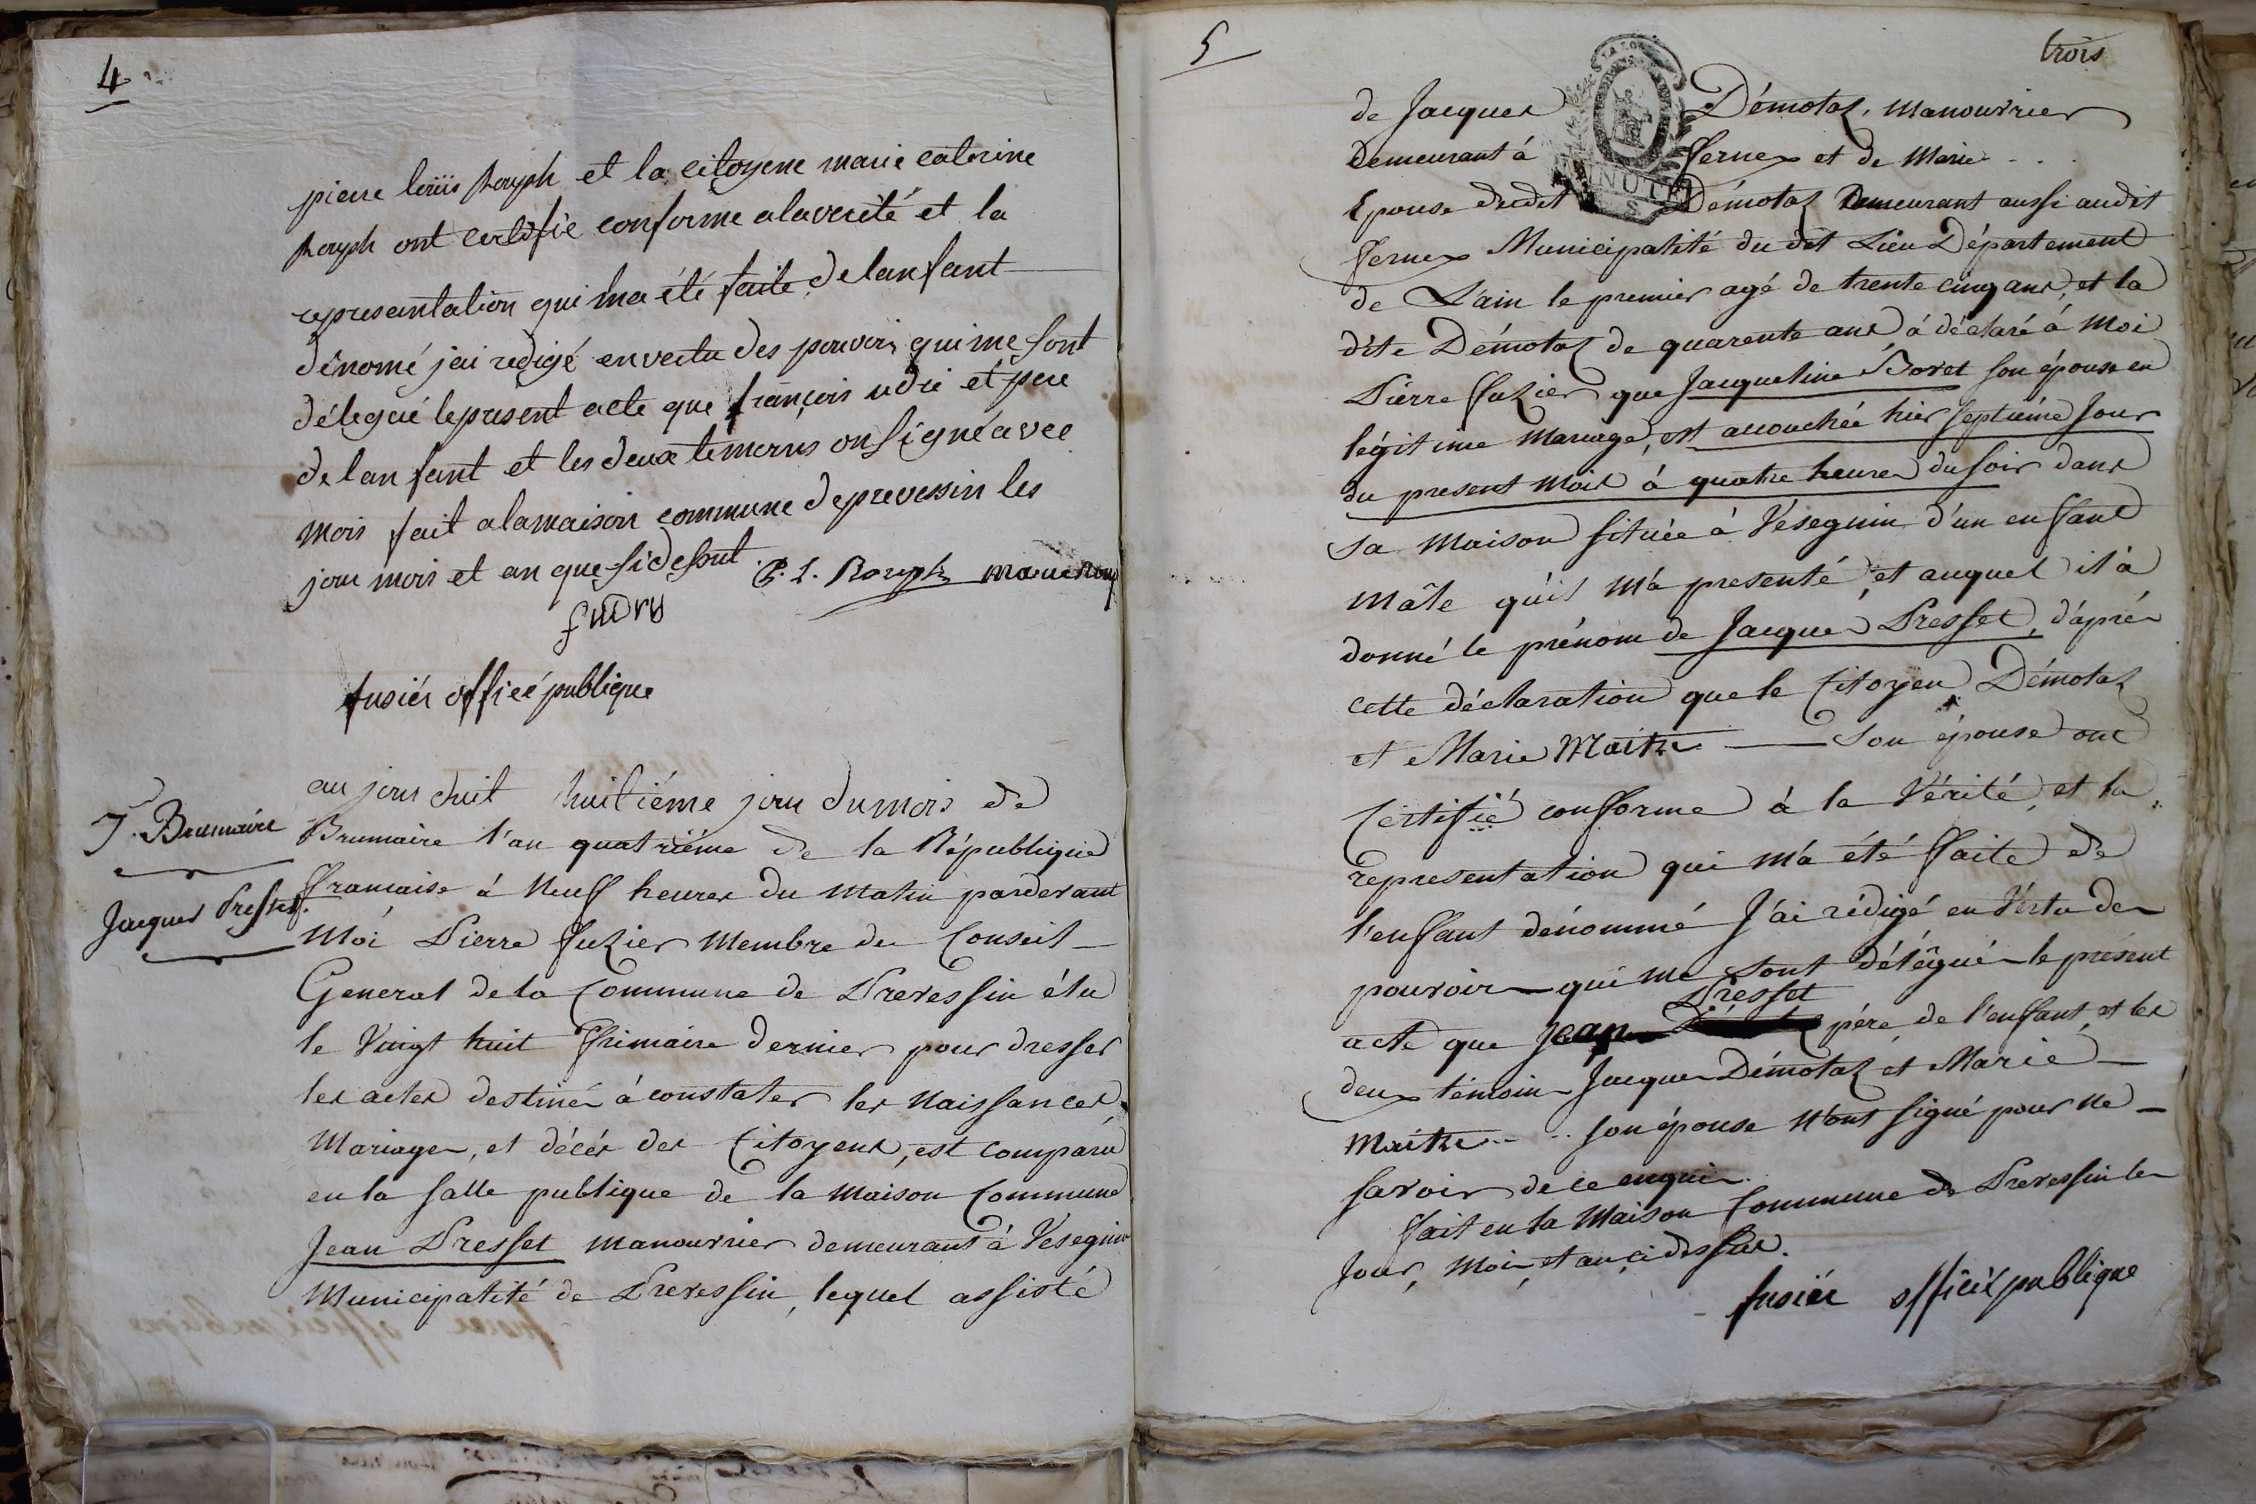 4
pierre loüis Rouph et la citoyene marie catrine
Rouph ont certifie conforme a la verité et la
representation qui ma été faite de lanfant
dénomé jai redigé en vertu des pouvoirs qui me sont
délegué le present acte que françois udri et pere
de lanfant et les deux temoins on signé avec
mois fait a la maison commune de prevessin les
jour mois et an que si desout P. L. Rouph marie Roup
fudry
fusiér officié publique
7. Brumaire
Jacques Presset.
au jour duit huitiéme jour du mois de
Brumaire l'an quatriéme de la République
francaise á Neuf heures du Matin pardevant
Moi Pierre fuzier Membre du Conseil
General de la Commune de Prevessin élu
le Vingt huit frimaire dernier pour dresser
les actes destinés á constater les Naissances
Mariages, et décés des Citoyens, est comparu
en la salle publique de la Maison Commune
Jean Presset Manouvrier demeurant á Vesegnin
Municipalité de Prevessin, lequel assisté
5
trois
MINUTE
S
de Jacques Démotaz, Manouvrier
demeurant á ferney et de Marie - . .
Epouse dudit Démotaz Demeurant aussi audit
ferney Municipalité du dit Lieu Département
de L'ain le premier agé de trente cinq ans, et la
dite Démotaz de quarente ans á déclaré á Moi
Pierre fuzier que Jacqueline Boret son épouse en
légitime Mariage, est accouchée hier septiéme Jour
du present Mois á quatre heures du soir dans
sa Maison située á Vésegnin d'un enfant
Mâle qu'il M'a presenté, et auquel il á
donné le prénom de Jacques Presset, d'aprés
cette déclaration que le Citoyen Démotaz
et Marie Maitre son épouse ont
Certifié conforme á la Vérité, et la
representation qui M'a été faite de
l'enfant dénommé J'ai rédigé en Vertu des
pouvoirs qui me sont délégués le présent
Presset
acte que Jean pére de l'enfant, et les
deux témoins Jacques Démotaz et Marie
Maitre son épouse N'ont signé pour Ne
savoir de ce enquis.
fait en la Maison Commune de Prevessin les
Jour, Mois, et an ci dessus.
fusiér officié publique